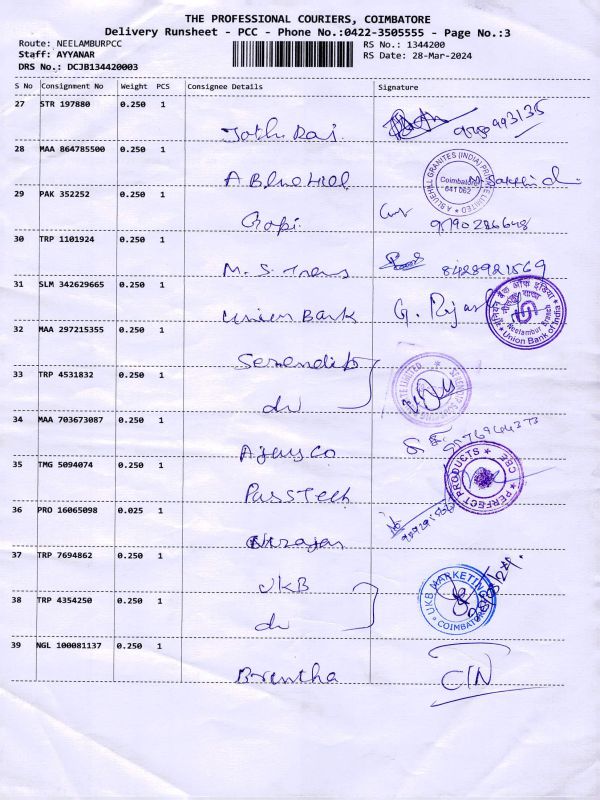 THE PROFESSIONAL COURIERS, COIMBATORE
Delivery Runsheet - PCC - Phone No.:0422-3505555 - Page No.:3
Route: NEELAMBURPCC RS No.: 1344200
Staff: AYYANAR RS Date: 28-Mar-2024
DRS No.: DCJB134420003
S No Consignment No Weight PCS Consignee Details Signature
27 STR 197880 0.250 1
28 MAA 864785500 0.250 1
A SLUEHILL GRANITES (INDIA) PRIVATE LIMITED
Coimbatore
641 062
29 PAK 352252 0.250 1
Gopi
30 TRP 1101924 0.250 1
M. S. Trans 8428921569
31 SLM 342629665 0.250 1
Union Bank G. Rajar
यूनियन बैंक ऑफ इंडिया
Neelambur Branch
Union Bank of India
32 MAA 297215355 0.250 1
33 TRP 4531832 0.250 1
do
34 MAA 703673087 0.250 1
35 TMG 5094074 0.250 1
PassTech
PERFECT PRODUCTS CBE
36 PRO 16065098 0.025 1
37 TRP 7694862 0.250 1
UKB
UKB MARKETING
COIMBATORE
38 TRP 4354250 0.250 1
do
39 NGL 100081137 0.250 1
Brentha